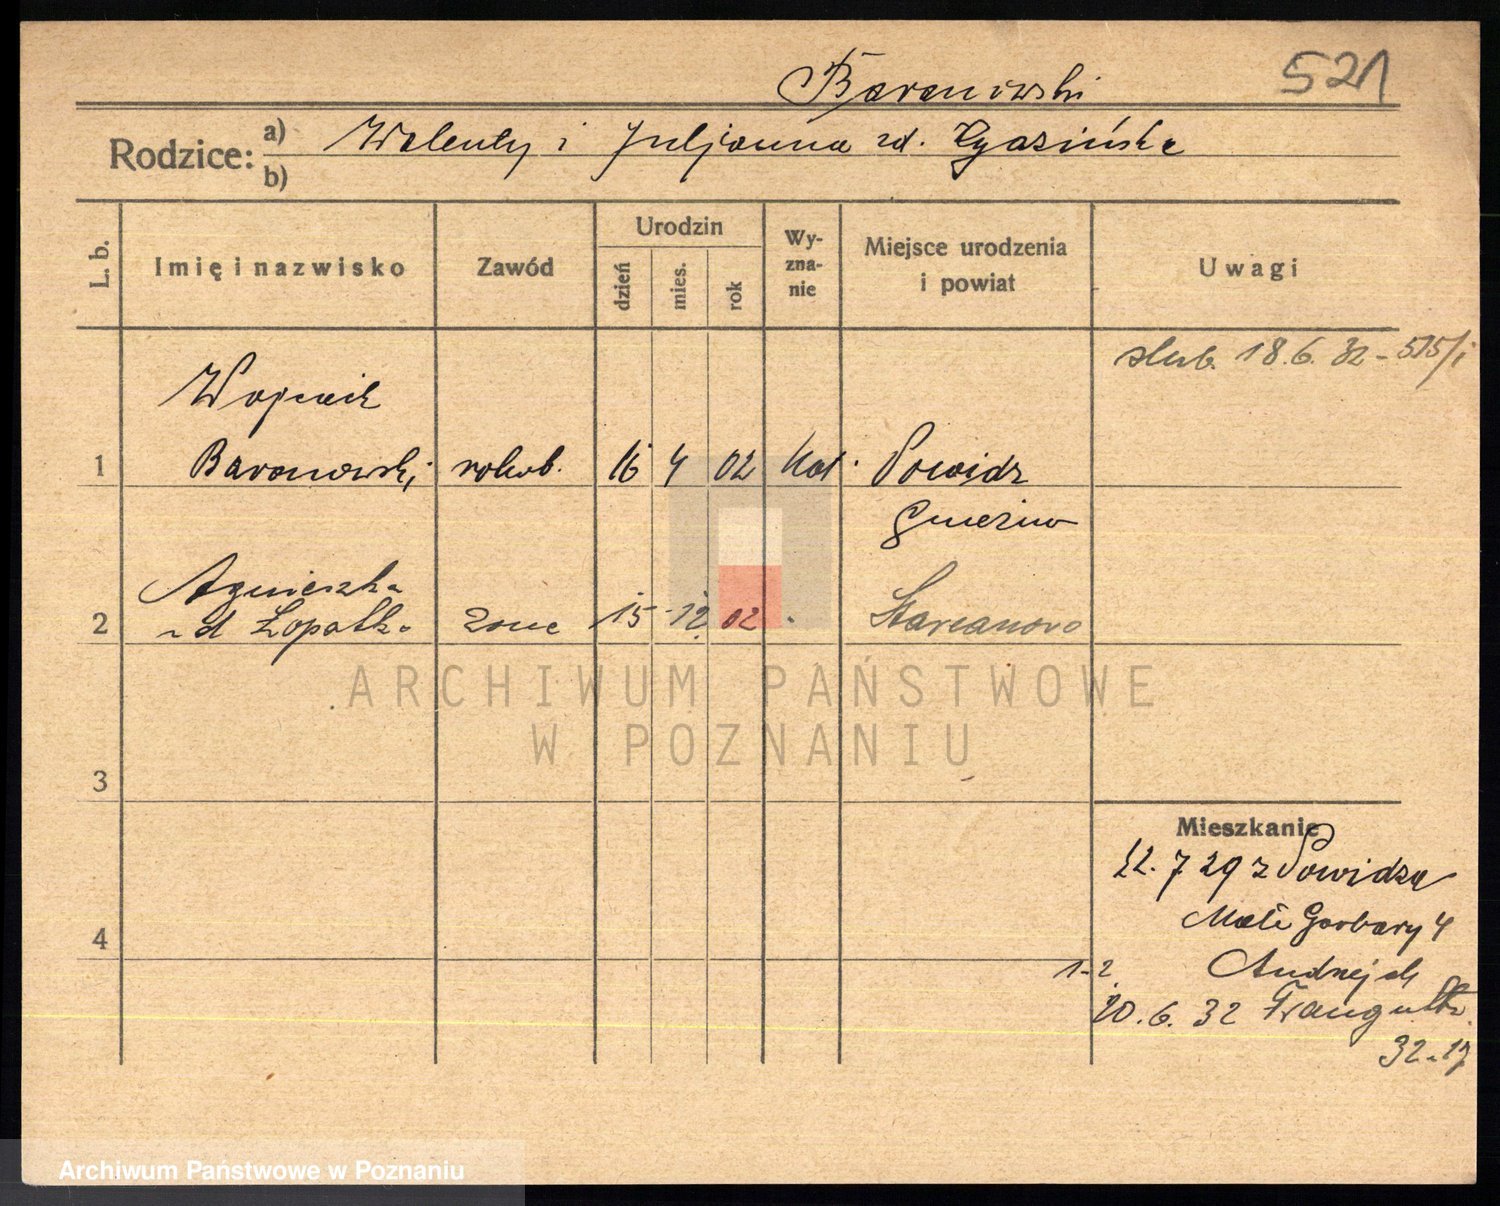 Baranowski
521
Rodzice: a) Walenty i Juljanna zd.
b)
L. b.
Imię i nazwisko
Zawód
Urodzin
dzień
mies.
rok
Wy-
zna-
nie
Miejsce urodzenia
i powiat
Uwagi
18.6.32 - 515/i
Wojciech
1 Baranowski robotn. 16 4 02 kat. Powidz
Gniezno
Agnieszka
2 zd Łopatka żona 15 12 02
ARCHIWUM PAŃSTWOWE
W POZNANIU
3
Mieszkanie
12.7 29 z Powidza
Małe Garbary 4
4
1-2
20.6.32 Traugutta
32-17
Archiwum Państwowe w Poznaniu